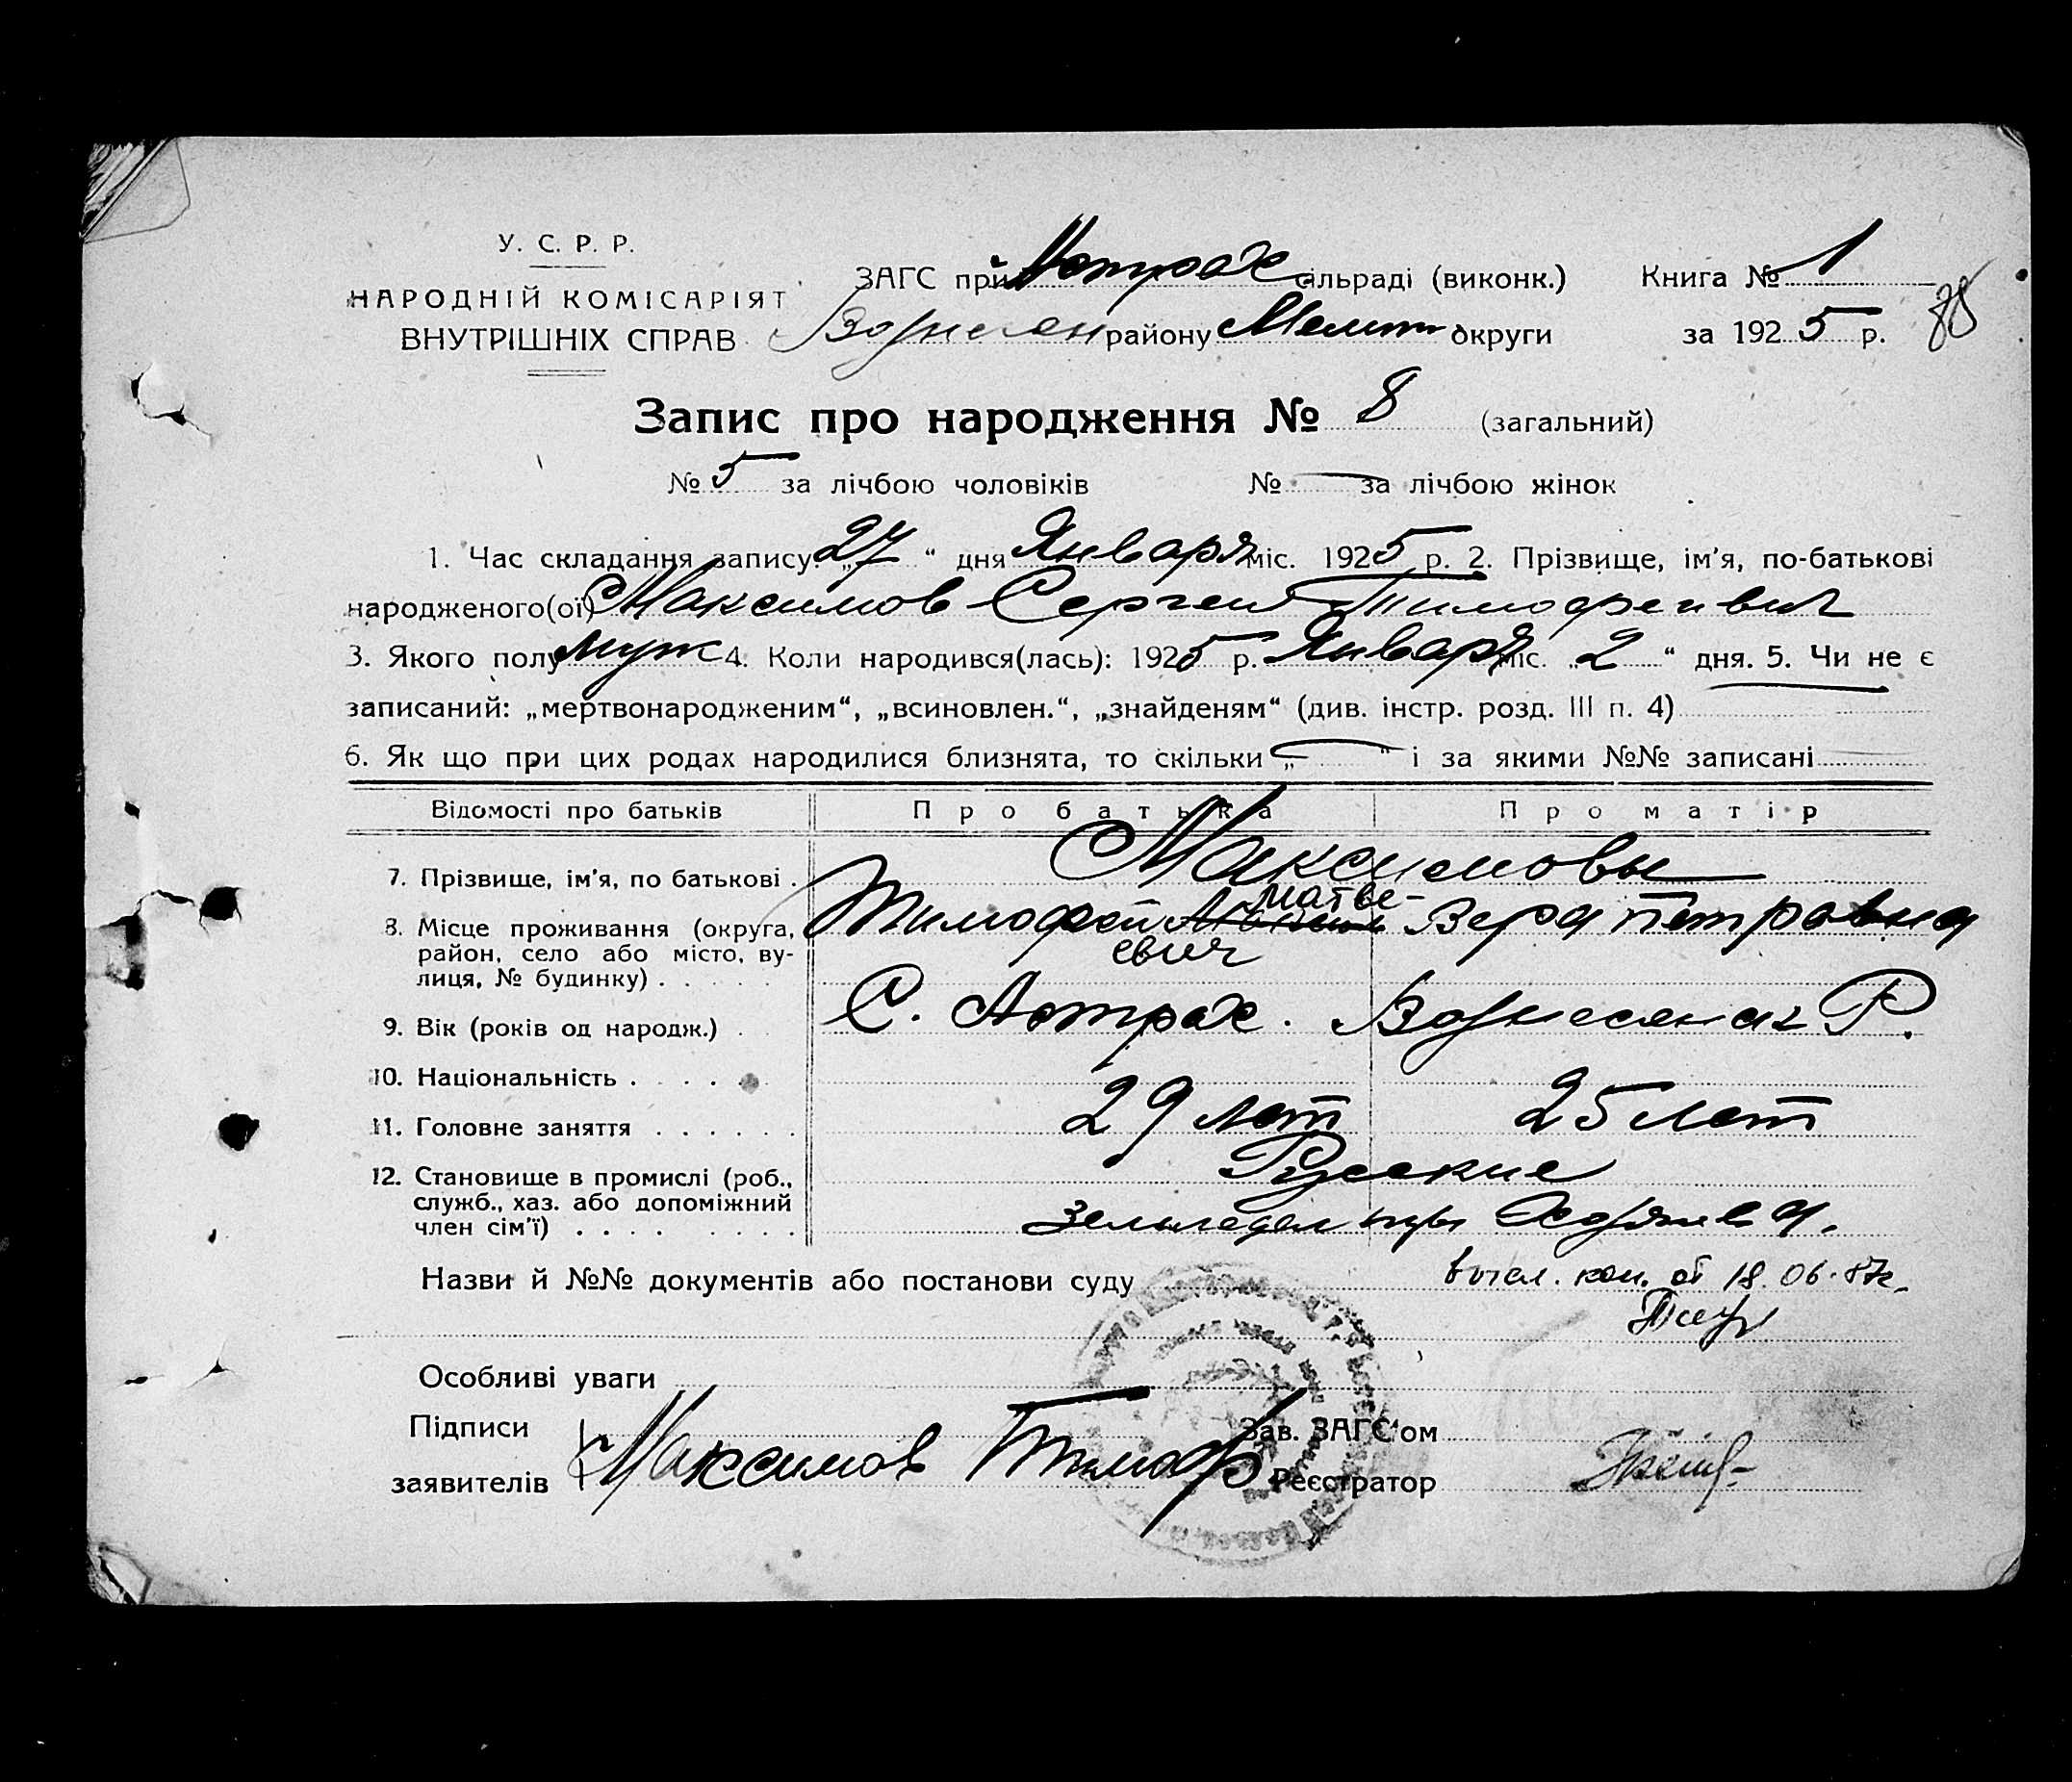 У. С. Р. Р.
НАРОДНІЙ КОМІСАРІЯТ
ВНУТРІШНІХ СПРАВ
ЗАГС при Астрах сільраді (виконк.) Книга № 1
Вознесен району Мелит округи за 1925 р.
Запис про народження № 8 (загальний)
№ 5 за лічбою чоловіків № — за лічбою жінок
1. Час складання запису: „27“ дня Января міс. 1925 р. 2. Прізвище, ім'я, по-батькові
народженого(ої) Максимов Сергей Тимофеивич
3. Якого полу муж 4. Коли народився(лась): 1925 р. Января міс. „2“ дня. 5. Чи не є
записаний: „мертвонародженим“, „всиновлен.“, „знайденям“ (див. інстр. розд. III п. 4)
6. Як що при цих родах народилися близнята, то скільки „—“ і за якими №№ записані
Відомості про батьків Про батька Про матір
7. Прізвище, ім'я, по батькові . Максимовы
8. Місце проживання (округа, район, село або місто, вулиця, № будинку) . . . . .
Тимофей Матвеевич Вера Петровна
9. Вік (років од народж.) . С. Астрах. Вознесенск Р.
10. Національність . . . . .
11. Головне заняття . . . . . . 29 лет 25 лет
12. Становище в промислі (роб., Русские
служб., хаз. або допоміжний
член сім'ї) . . . . . . . . Хозяева.
Назви й №№ документів або постанови суду от 18.06.87г.
Особливі уваги
Підписи Зав. ЗАГС'ом
заявителів Максимов Тимоф Реєстратор